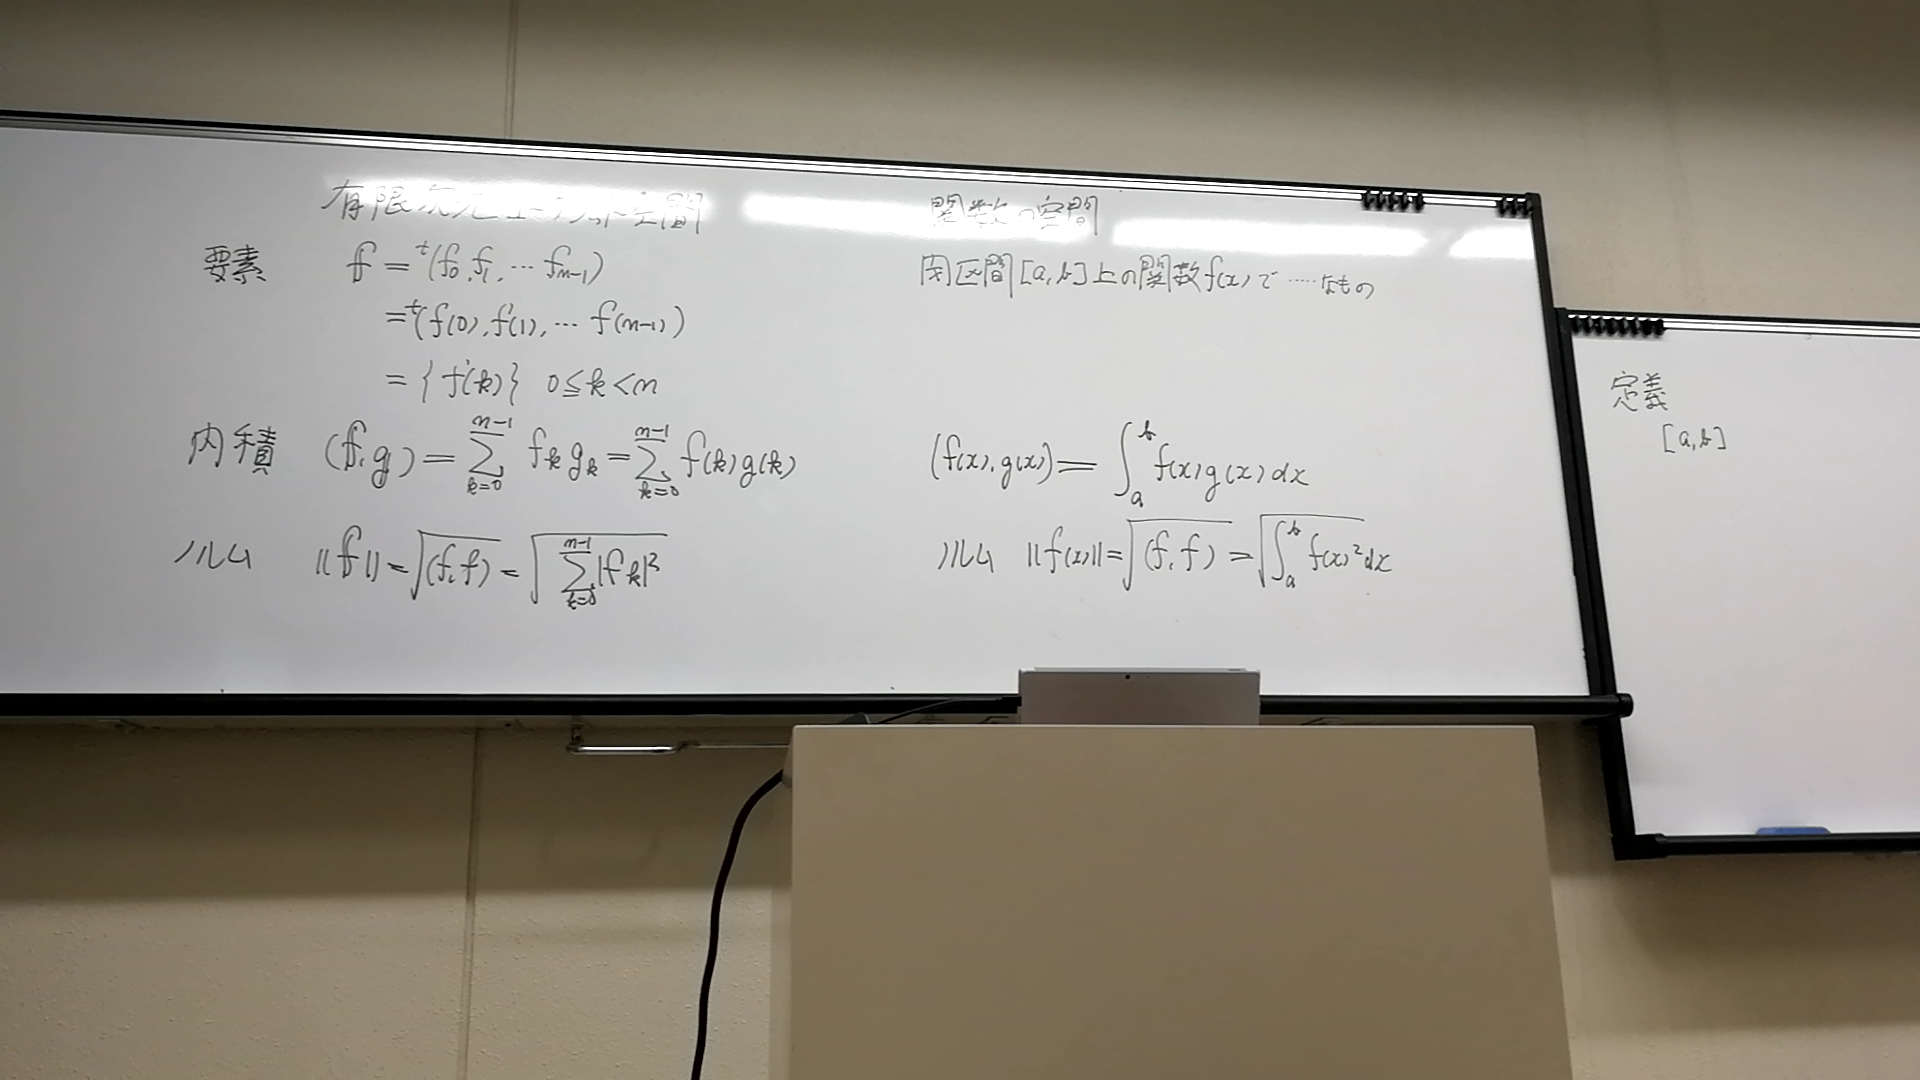 有限次元ユークリッド空間
要素 f = ᵗ(f₀, f₁, … fₙ₋₁)
= ᵗ(f(0), f(1), … f(n-1))
= { f(k) } 0 ≦ k < n
内積 (f, g) = ∑_{k=0}^{n-1} f_k g_k = ∑_{k=0}^{n-1} f(k) g(k)
ノルム ||f|| = √(f, f) = √∑_{k=0}^{n-1} |f_k|²
関数の空間
閉区間[a, b]上の関数f(x)で……なもの
(f(x), g(x)) = ∫_a^b f(x) g(x) dx
ノルム ||f(x)|| = √(f, f) = √∫_a^b f(x)² dx
定義
[a, b]